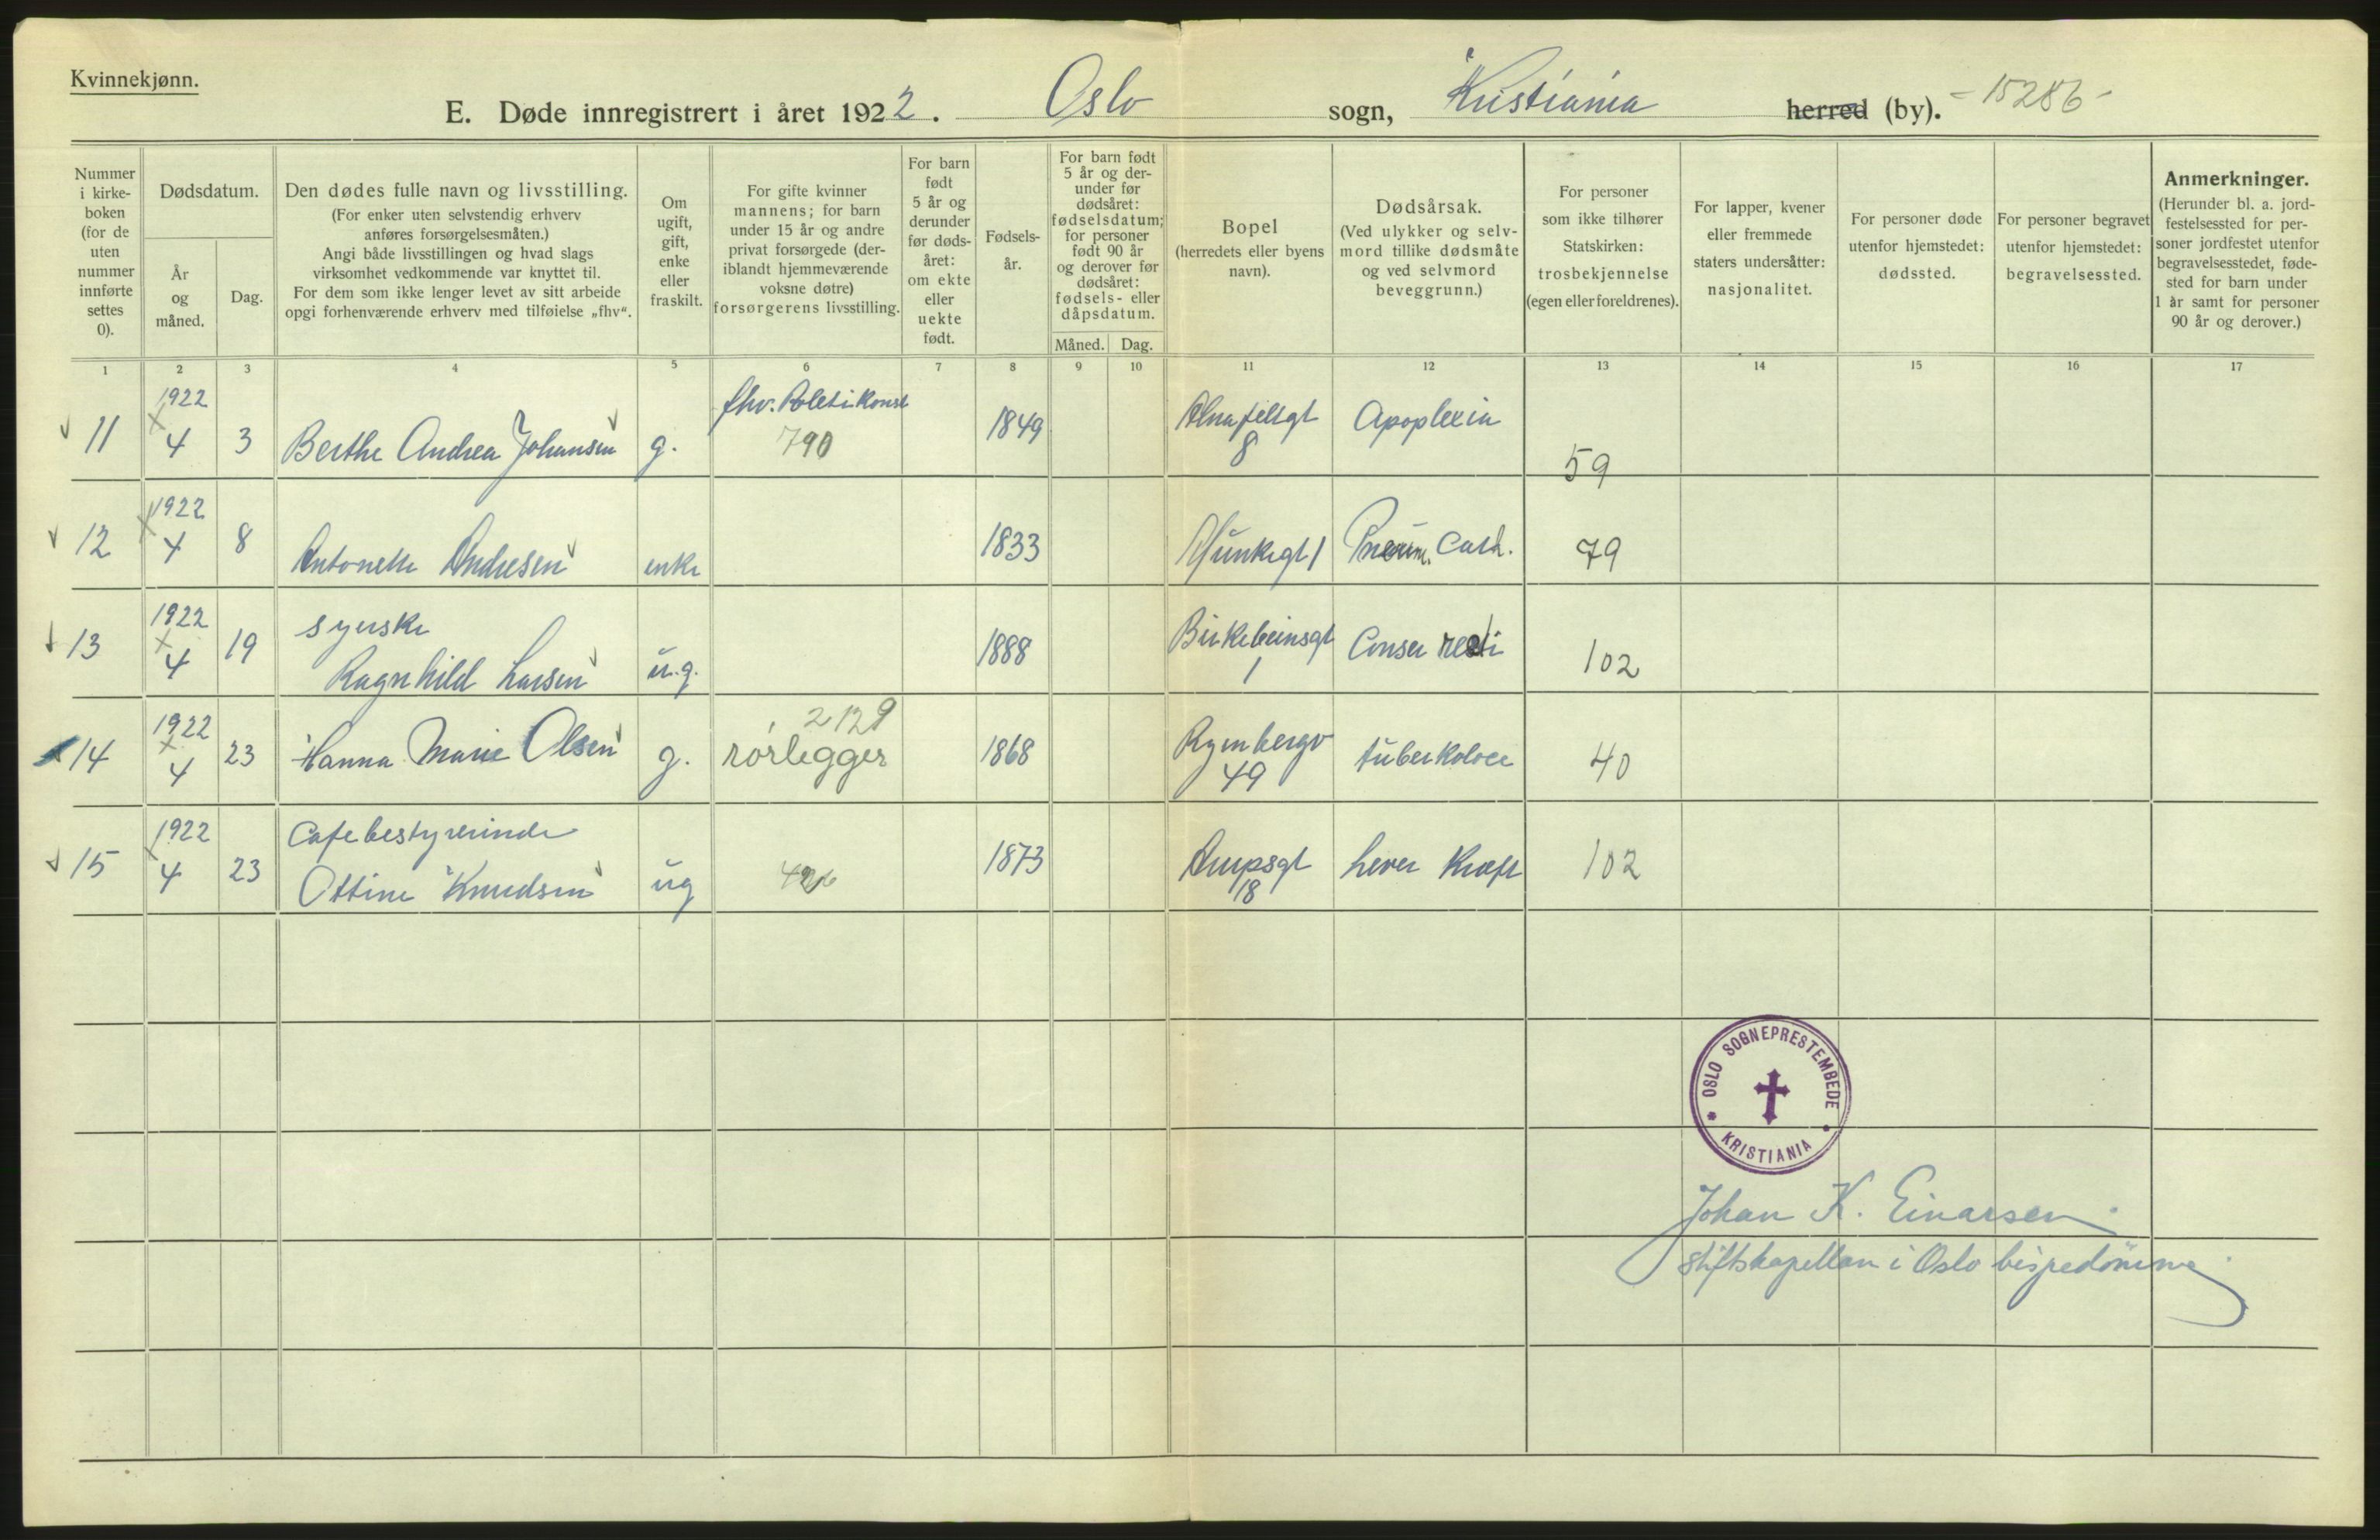 Kvinnekjønn.
E. Døde innregistrert i året 1922. Oslo sogn, Kristiania herred (by). - 15286 -
Nummer i kirke-boken (for de uten nummer innførte settes 0).
Dødsdatum.
År og måned.
Dag.
Den dødes fulle navn og livsstilling.
(For enker uten selvstendig erhverv
anføres forsørgelsesmåten.)
Angi både livsstillingen og hvad slags
virksomhet vedkommende var knyttet til.
For dem som ikke lenger levet av sitt arbeide
opgi forhenværende erhverv med tilføielse „fhv“.
Om
ugift,
gift,
enke
eller
fraskilt.
For gifte kvinner
mannens; for barn
under 15 år og andre
privat forsørgede (der-
iblandt hjemmeværende
voksne døtre)
forsørgerens livsstilling.
For barn
født
5 år og
derunder
før døds-
året:
om ekte
eller
uekte
født.
Fødsels-
år.
For barn født
5 år og der-
under før
dødsåret:
fødselsdatum;
for personer
født 90 år
og derover før
dødsåret:
fødsels- eller
dåpsdatum.
Måned. Dag.
Bopel
(herredets eller byens
navn).
Dødsårsak.
(Ved ulykker og selv-
mord tillike dødsmåte
og ved selvmord
beveggrunn.)
For personer
som ikke tilhører
Statskirken:
trosbekjennelse
(egen eller foreldrenes).
For lapper, kvener
eller fremmede
staters undersåtter:
nasjonalitet.
For personer døde
utenfor hjemstedet:
dødssted.
For personer begravet
utenfor hjemstedet:
begravelsessted.
Anmerkninger.
(Herunder bl. a. jord-
festelsessted for per-
soner jordfestet utenfor
begravelsesstedet, føde-
sted for barn under
1 år samt for personer
90 år og derover.)
1 2 3 4 5 6 7 8 9 10 11 12 13 14 15 16 17
11 1922 4 3 Berthe Andrea Johansen g. fhv. Politikonst 790 1849 Alnafeltgt 8 Apoplexia 59
12 1922 4 8 Antonette Andresen enke 1833 Munkegt 1 Pneum. Cath. 79
13 1922 4 19 syerske Ragnhild Larsen u.g. 1888 Birkebeinsgt 1 Cancer recti 102
14 1922 4 23 Hanna Marie Olsen g. 2129 rørlegger 1868 Ryenbergv 49 tuberkolose 40
15 1922 4 23 Cafebestyrerinde Ottine Knudsen ug 1873 18 Lever Kræft 102
OSLO SOGNEPRESTEMBEDE
KRISTIANIA
Johan K. Einarsen
stiftskapellan i Oslo bispedømme